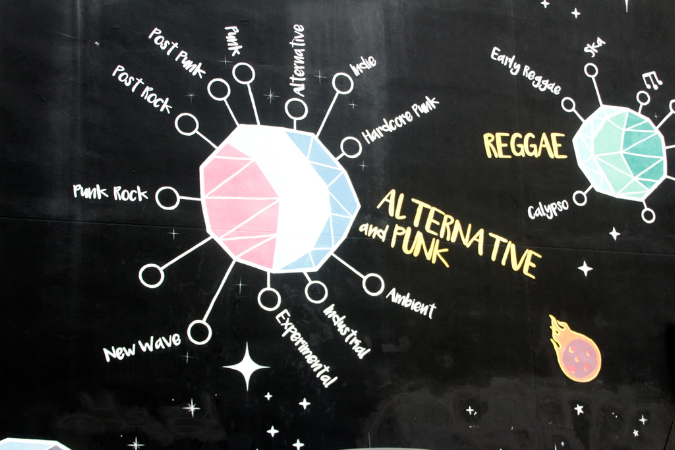 Punk
Alternative
Indie
Post Punk
Post Rock
Hardcore Punk
Punk Rock
ALTERNATIVE
and PUNK
Ambient
Industrial
Experimental
New Wave
Ska
Early Reggae
REGGAE
Calypso